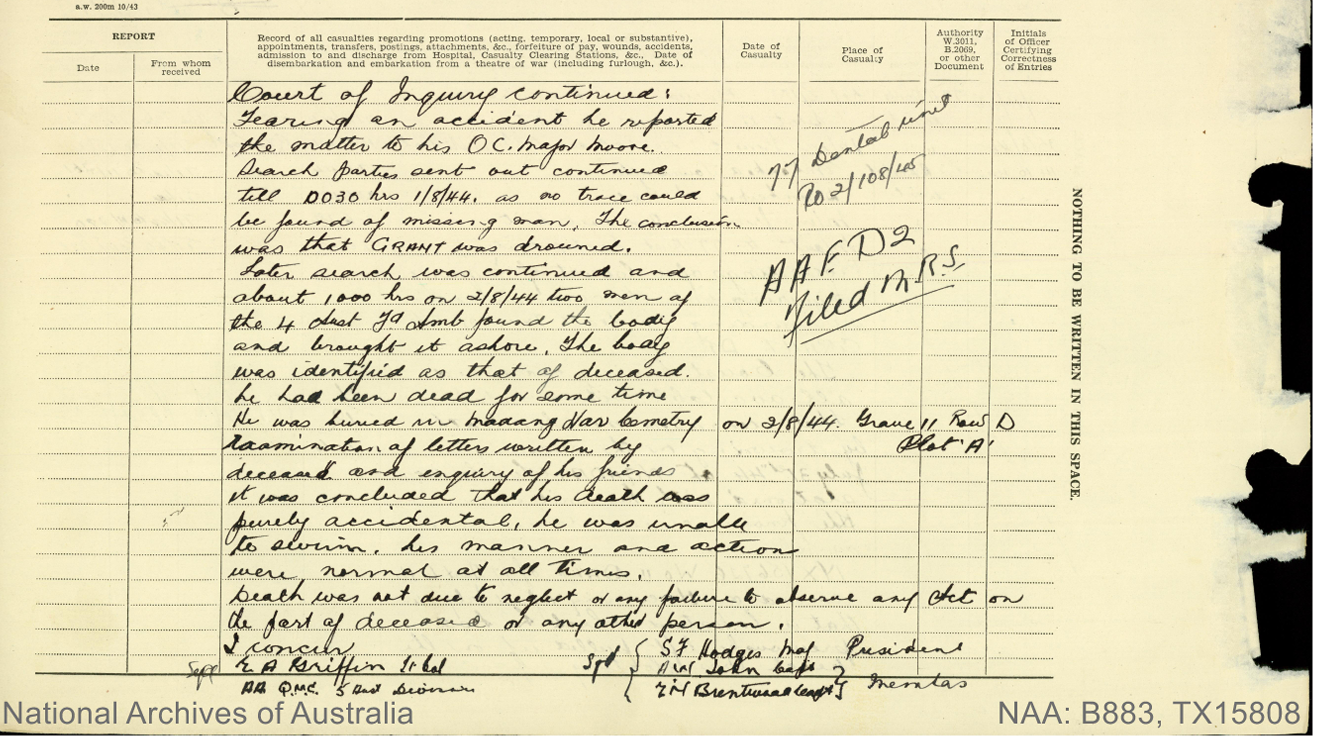 a.w. 200m 10/43
REPORT
Date
From whom
received
Record of all casualties regarding promotions (acting, temporary, local or substantive),
appointments, transfers, postings, attachments, &c., forfeiture of pay, wounds, accidents,
admission to and discharge from Hospital, Casualty Clearing Stations, &c., Date of
disembarkation and embarkation from a theatre of war (including furlough, &c.).
Date of
Casualty
Place of
Casualty
Authority
W.3011,
B.2069,
or other
Document
Initials
of Officer
Certifying
Correctness
of Entries
Court of Inquiry continued:
Fearing an accident he reported
the matter to his OC. Major Moore.
Search parties sent out continued
till 0030 hrs 1/8/44. as no trace could
be found of missing man. The conclusion
was that GRANT was drowned.
Later search was continued and
about 1000 hrs on 2/8/44 two men of
the 4 Aust Fd Amb found the body
and brought it ashore. The body
was identified as that of deceased.
he had been dead for some time
He was buried in Madang War Cemetry on 2/8/44. Grave 11 Row D
Plot 'A'
Examination of letters written by
deceased and enquiry of his friends
it was concluded that his death was
purely accidental, he was unable
to swim. his manner and action
were normal at all times.
Death was not due to neglect or any failure to observe any Act on
the part of deceased or any other person.
I concur
Sgd E A Griffin Lt Col
AA Q.M.G. 5 Aust Division
Sgd S F Hodges Maj President
A W John Capt
Brentwood Capt Members
77 Dental Unit
RO 2/108/45
AAF D2
Filed M.R.S.
NOTHING TO BE WRITTEN IN THIS SPACE.
National Archives of Australia
NAA: B883, TX15808